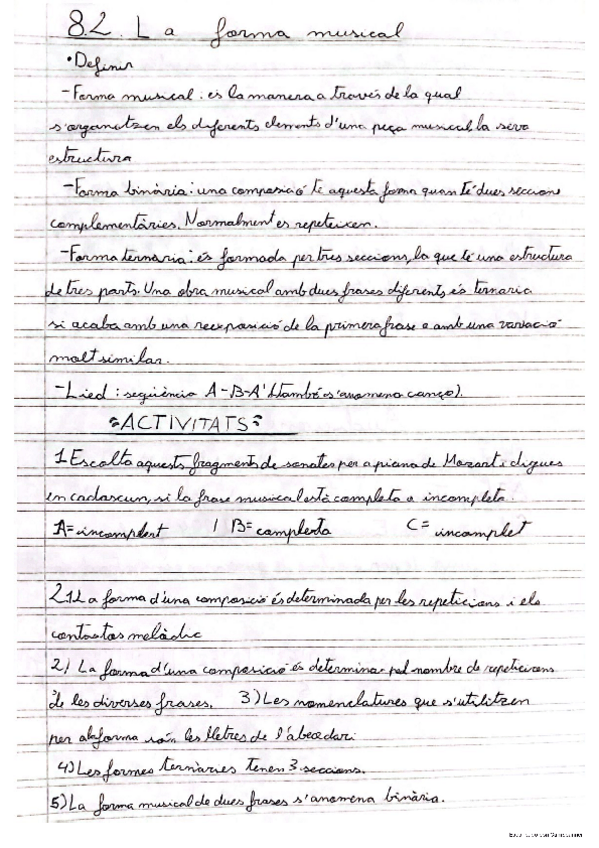 8.2. La forma musical
• Definir
- Forma musical: és la manera a través de la qual
s'organitzen els diferents elements d'una peça musical, la seva
estructura
- Forma binària: una composició té aquesta forma quan té dues seccions
complementàries. Normalment es repeteixen.
- Forma ternària: és formada per tres seccions, la que té una estructura
de tres parts. Una obra musical amb dues frases diferents és ternaria
si acaba amb una reexposició de la primera frase o amb una variació
molt similar.
- Lied: seqüència A-B-A' (també s'anomena cançó).
ACTIVITATS
1. Escolta aquests fragments de sonates per a piano de Mozart i digues
en cadascun, si la frase musical està completa o incompleta.
A= incomplert / B= complerta C= incomplet
2.1 La forma d'una composició és determinada per les repeticions i els
contrastos melòdic
2) La forma d'una composició és determinar pel nombre de repeticions
de les diverses frases. 3) Les nomenclatures que s'utilitzen
per la forma són les lletres de l'abecedari
4) Les formes ternàries tenen 3 seccions.
5) La forma musical de dues frases s'anomena binària.